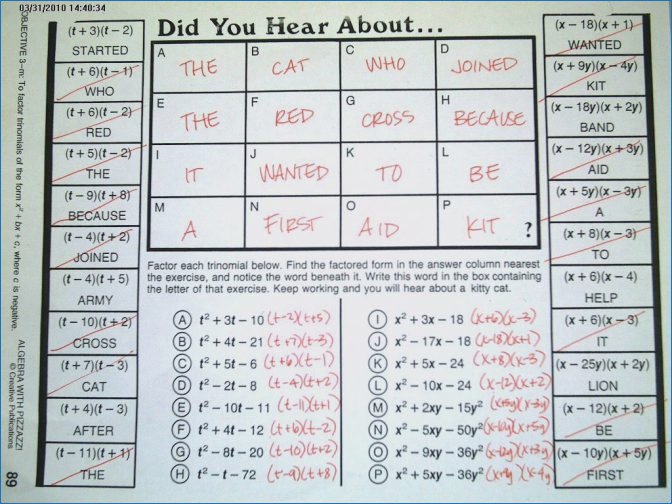 03/31/2010 14:40:34
Did You Hear About...
A THE
B CAT
C WHO
D JOINED
E THE
F RED
G CROSS
H BECAUSE
I IT
J WANTED
K TO
L BE
M A
N FIRST
O AID
P KIT ?
(t + 3)(t − 2)
STARTED
(t + 6)(t − 1)
WHO
(t + 6)(t − 2)
RED
(t + 5)(t − 2)
THE
(t − 9)(t + 8)
BECAUSE
(t − 4)(t + 2)
JOINED
(t − 4)(t + 5)
ARMY
(t − 10)(t + 2)
CROSS
(t + 7)(t − 3)
CAT
(t + 4)(t − 3)
AFTER
(t − 11)(t + 1)
THE
Factor each trinomial below. Find the factored form in the answer column nearest
the exercise, and notice the word beneath it. Write this word in the box containing
the letter of that exercise. Keep working and you will hear about a kitty cat.
A t² + 3t − 10 (t-2)(t+5)
B t² + 4t − 21 (t+7)(t-3)
C t² + 5t − 6 (t+6)(t-1)
D t² − 2t − 8 (t-4)(t+2)
E t² − 10t − 11 (t-11)(t+1)
F t² + 4t − 12 (t+6)(t-2)
G t² − 8t − 20 (t-10)(t+2)
H t² − t − 72 (t-9)(t+8)
I x² + 3x − 18 (x+6)(x-3)
J x² − 17x − 18 (x-18)(x+1)
K x² + 5x − 24 (x+8)(x-3)
L x² − 10x − 24 (x-12)(x+2)
M x² + 2xy − 15y² (x+5y)(x-3y)
N x² − 5xy − 50y² (x-10y)(x+5y)
O x² − 9xy − 36y² (x-12y)(x+3y)
P x² + 5xy − 36y²
(x − 18)(x + 1)
WANTED
(x + 9y)(x − 4y)
KIT
(x − 18y)(x + 2y)
BAND
(x − 12y)(x + 3y)
AID
(x + 5y)(x − 3y)
A
(x + 8)(x − 3)
TO
(x + 6)(x − 4)
HELP
(x + 6)(x − 3)
IT
(x − 25y)(x + 2y)
LION
(x − 12)(x + 2)
BE
(x − 10y)(x + 5y)
FIRST
OBJECTIVE 3–m: To factor trinomials of the form x² + bx + c, where c is negative.
ALGEBRA WITH PIZZAZZ!
© Creative Publications
89